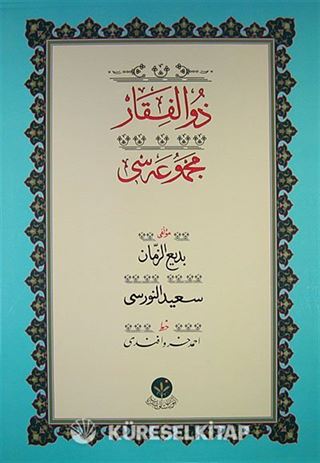 ذو الفقار
مجموعه سی
مؤلفی
بديع الزمان
سعيد النورسی
خط
احمد خسرو افندی
KÜRESELKİTAP